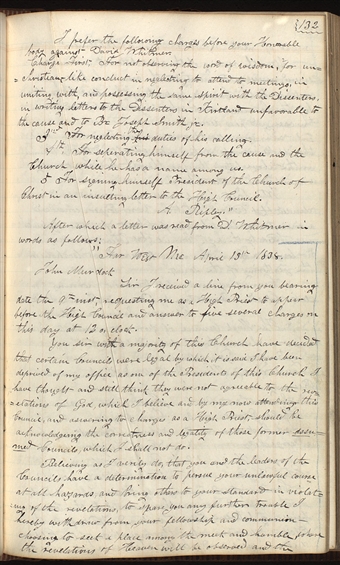 132
I prefer the following charges before your Honorable
body against David Whitmer.
Charge first. For not observing the word of wisdom, for un-
christian-like conduct in neglecting to attend to meetings, in
uniting with, and possessing the same spirit with the Dissenters,
in writing letters to the Dissenters in Kirtland unfavorable to
the cause and to Br. Joseph Smith jr.
For neglecting the duties of his calling.
4th For seperating himself from the cause and the
Church while he has a name among us.
5 For signing himself President of the Church of
Christ in an insulting letter to the High Council.
A. Ripley."
After which a letter was read from D. Whitmer in
words as follows;
"Far West Mo. April 13th 1838.
John Murdock
Sir I received a line from you bearing
date the 9th inst, requesting me as a High Priest to appear
before the High Council and answer to five several charges on
this day at 12 o,clock.
You sir with a majority of this Church have decided
that certain Councils were legal by which it is said I have been
deprived of my office as one of the Presidents of this Church I
have thought and still think they were not agreeable to the rev-
elations of God, which I believe and by my now attending this
Council, and answering to charges as a High Priest, should be
acknowledging the correctness and legality of those former assu-
med Councils, which I shall not do.
Believing as I verily do, that you and the leaders of the
Councils have a determination to persue your unlawful course
at all hazards, and bring others to your standard in violat-
ing of the revelations, to spare you any further trouble I
hereby withdraw from your fellowship and communion—
choosing to seek a place among the meek and humble, where
the revelations of Heaven will be observed and the